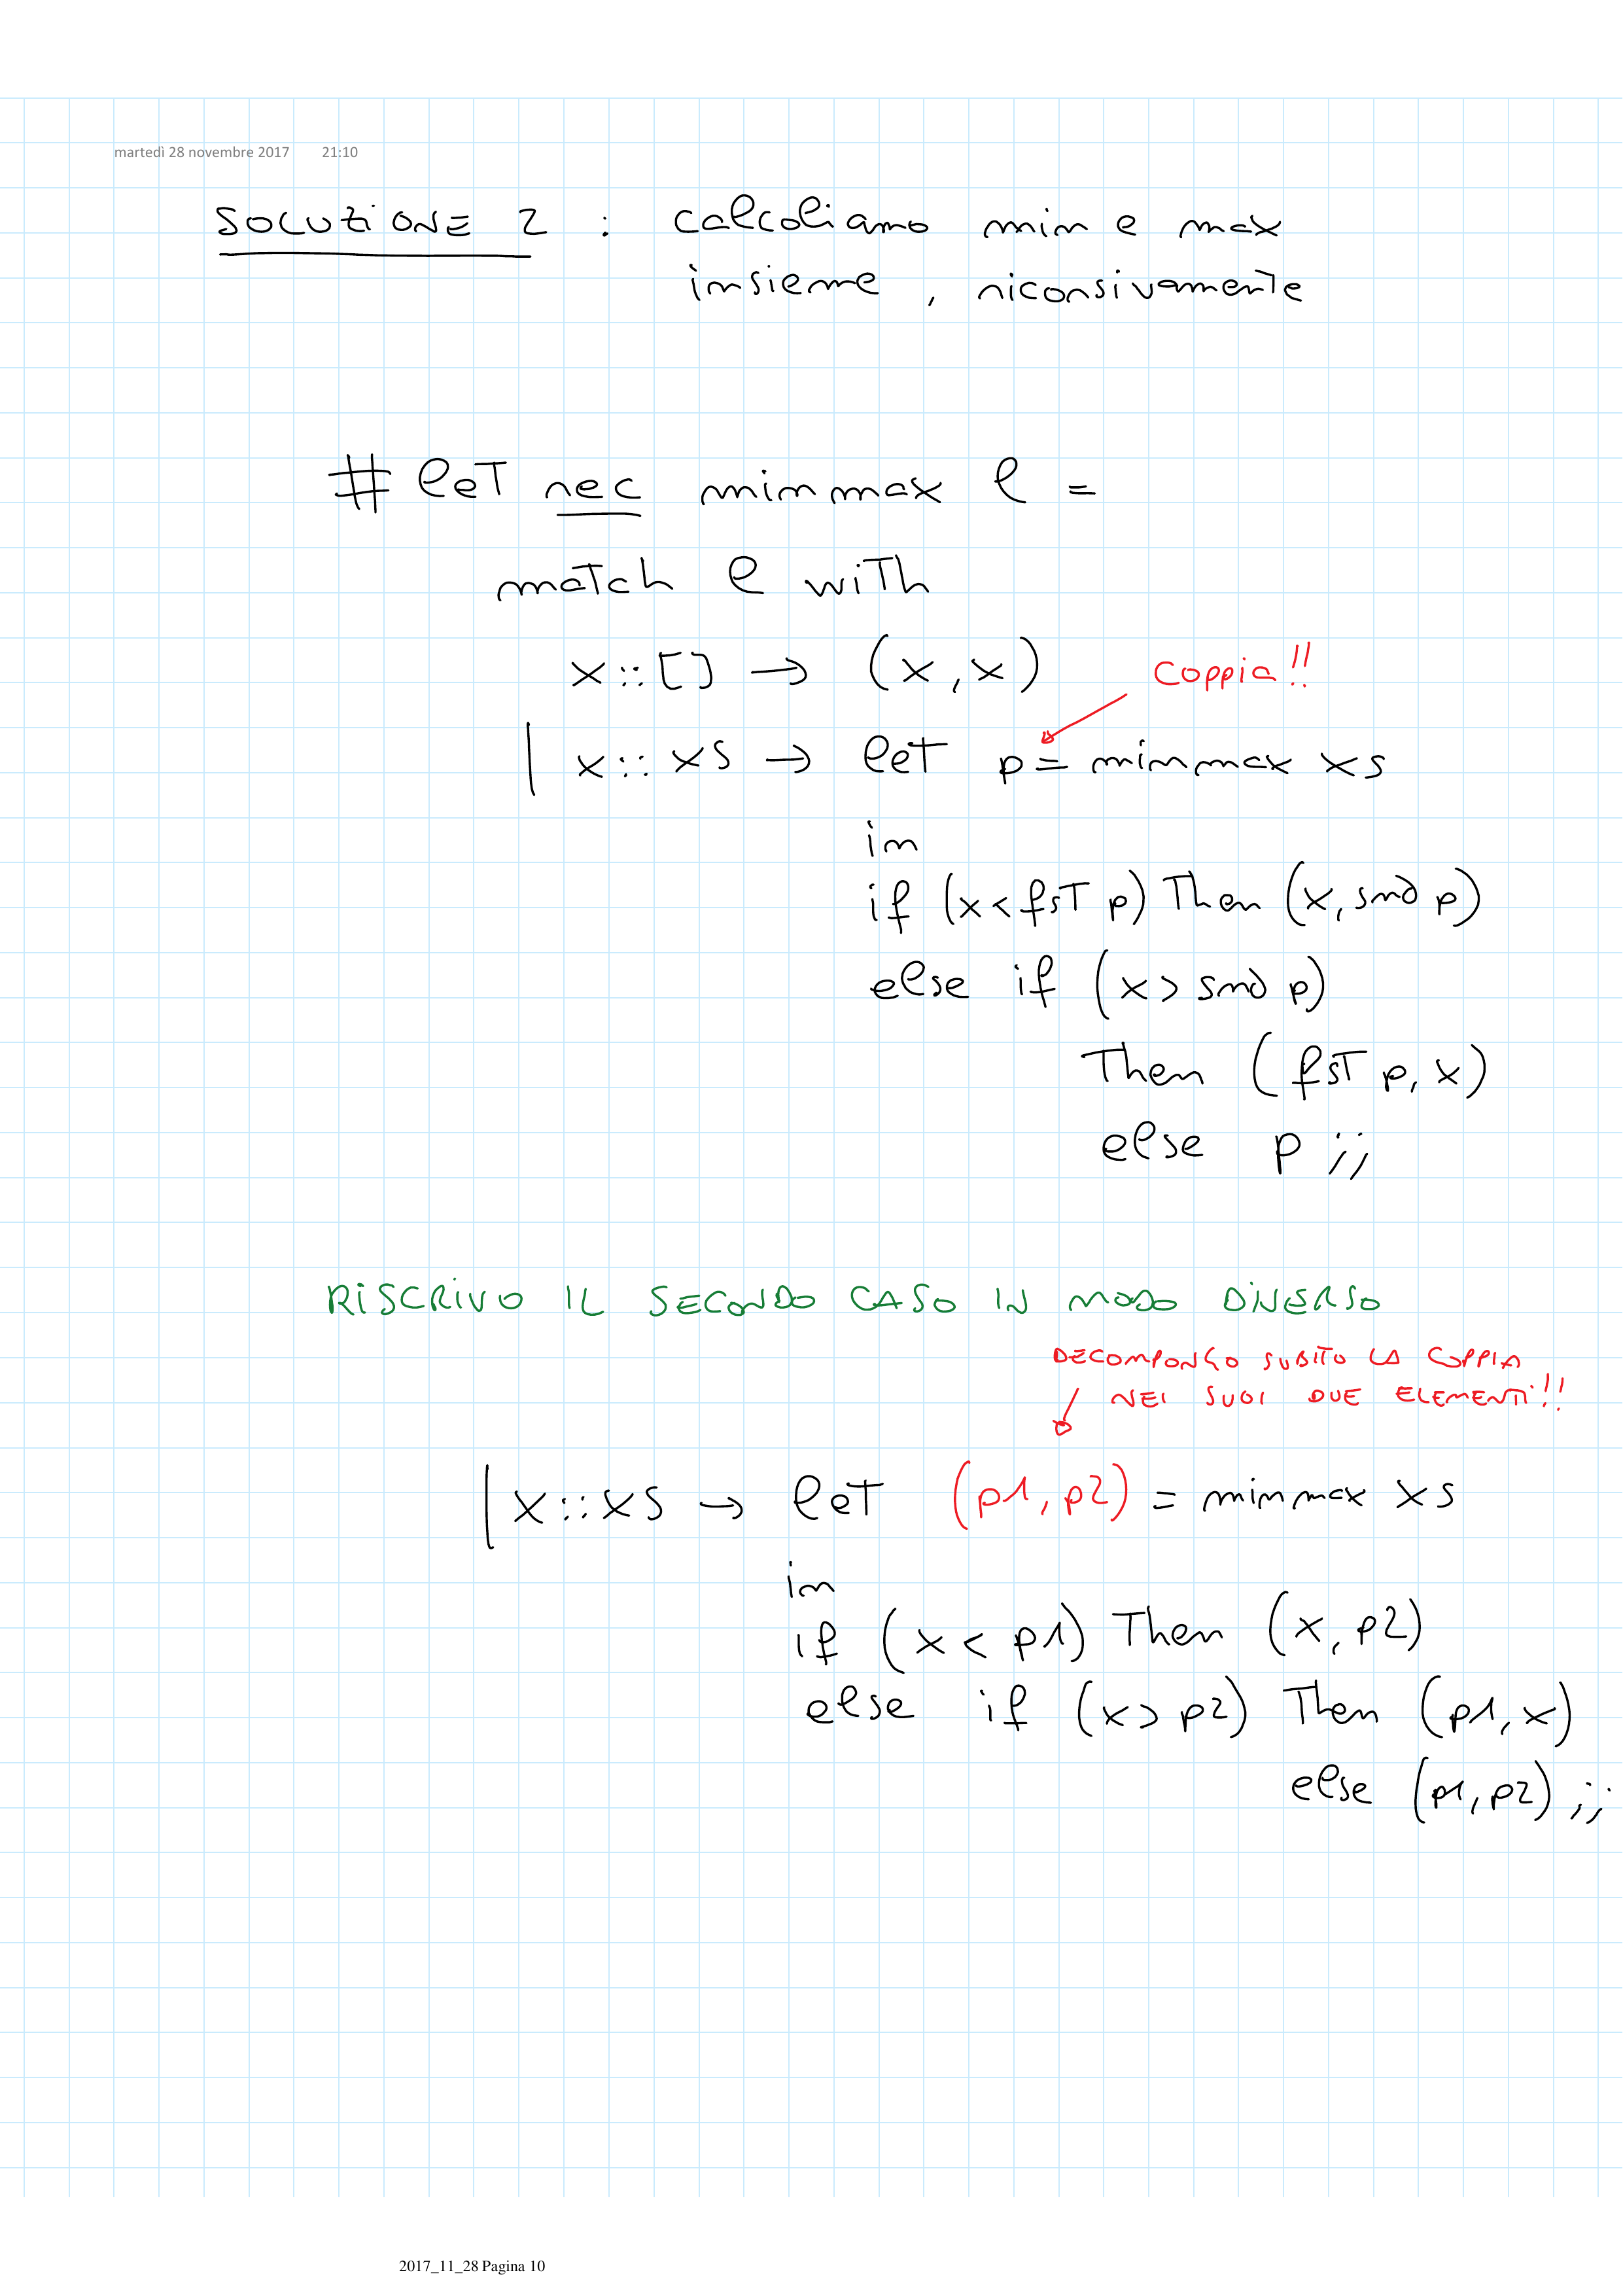 martedì 28 novembre 2017 21:10
SOLUZIONE 2 : calcoliamo min e max
insieme, ricorsivamente
# let rec minmax l =
match l with
x::[] → (x,x)
coppia!!
| x::xs → let p = minmax xs
in
if (x < fst p) then (x, snd p)
else if (x > snd p)
then (fst p, x)
else p ;;
RISCRIVO IL SECONDO CASO IN MODO DIVERSO
DECOMPONGO SUBITO LA COPPIA
NEI SUOI DUE ELEMENTI!!
| x::xs → let (p1, p2) = minmax xs
in
if (x < p1) then (x, p2)
else if (x > p2) then (p1, x)
else (p1, p2) ;;
2017_11_28 Pagina 10